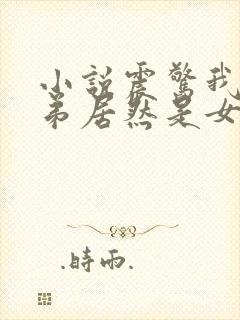 小說震驚我
弟居然是女
.時雨.